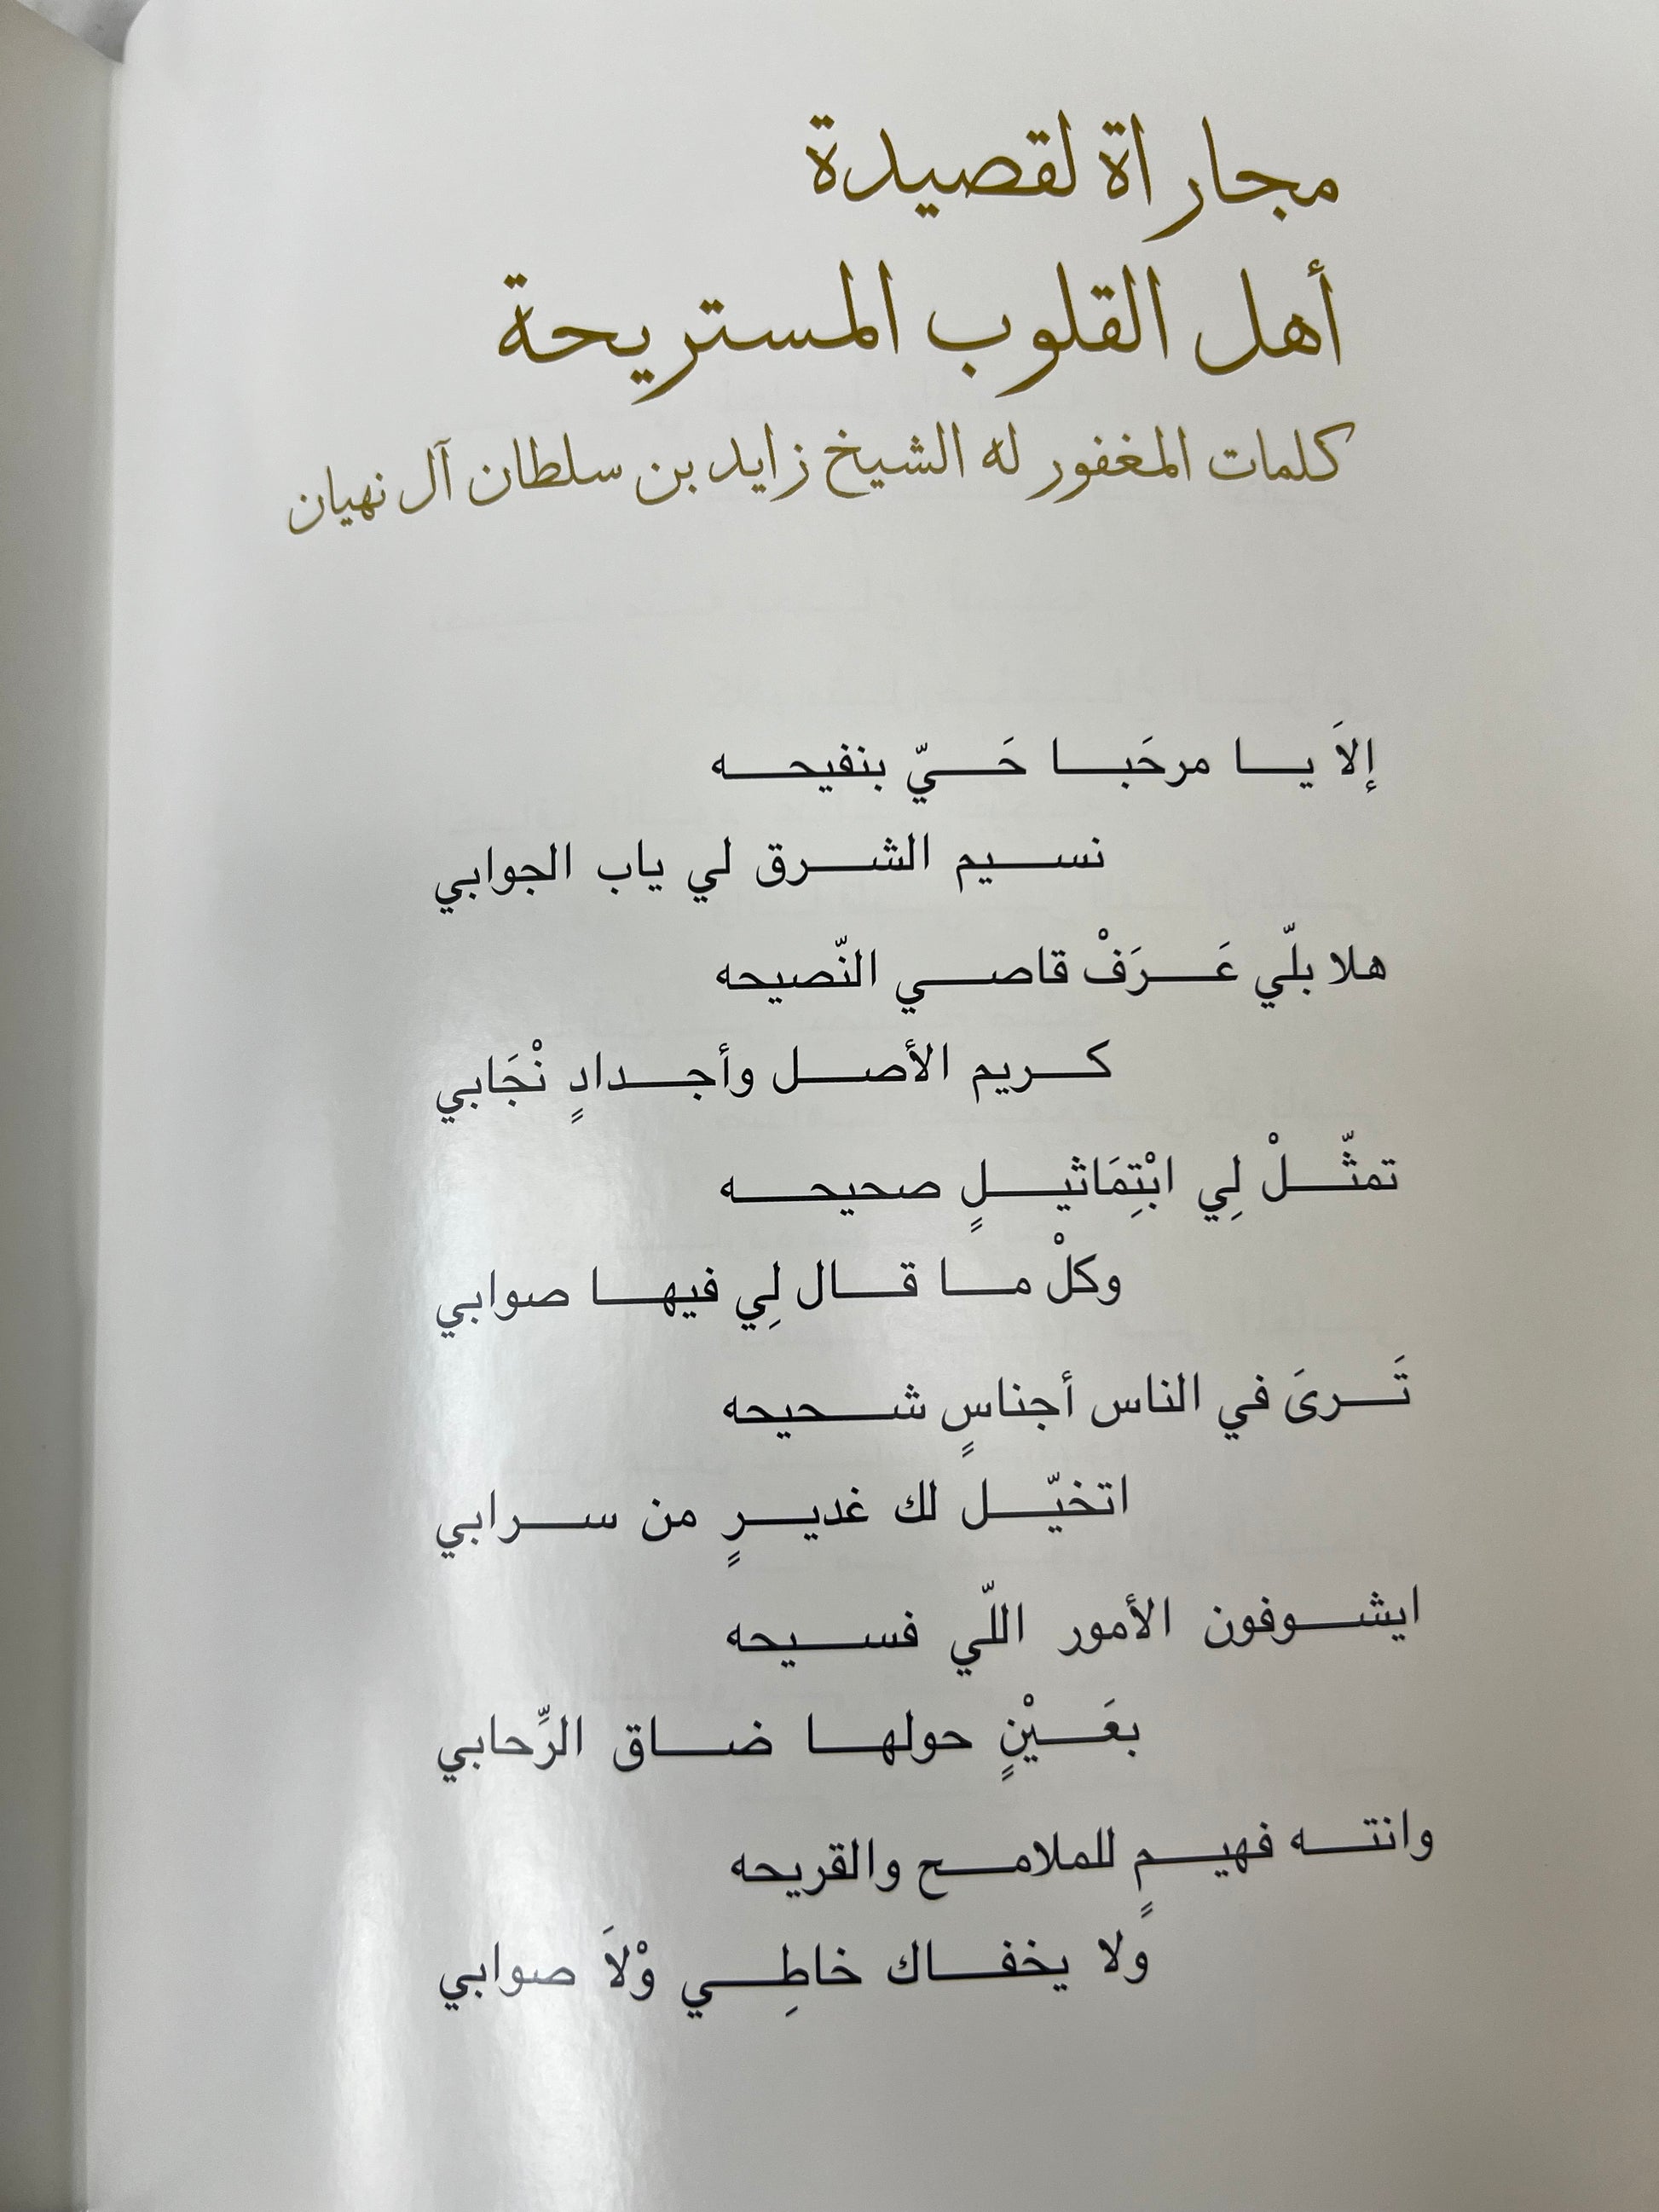 مجاراة لقصيدة
أهل القلوب المستريحة
كلمات المغفور له الشيخ زايد بن سلطان آل نهيان
إلاَ يا مرحَبا حَيّ بنفيحه
نسيم الشرق لي ياب الجوابي
هلا بلّي عَرَفْ قاصي النّصيحه
كريم الأصل وأجدادٍ نْجَابي
تمثّلْ لِي ابْتِمَاثيلٍ صحيحه
وكلْ ما قال لِي فيها صوابي
تَرىَ في الناس أجناسٍ شحيحه
اتخيّل لك غديرٍ من سرابي
ايشوفون الأمور اللّي فسيحه
بعَيْنٍ حولها ضاق الرِّحابي
وانته فهيمٍ للملامح والقريحه
ولا يخفاك خاطِي وْلاَ صوابي